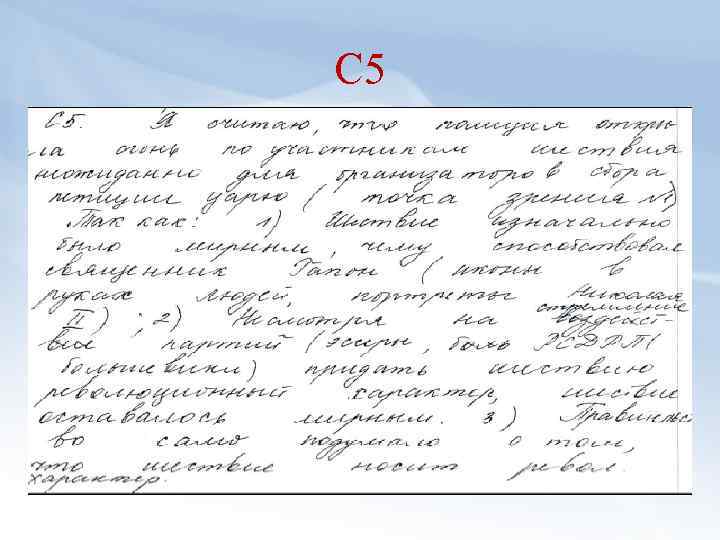 С5
С5. Я считаю, что полиция откры-
ла огонь по участникам шествия
неожиданно для организаторов сбора
петиции царю (точка зрения №1)
Так как: 1) Шествие изначально
было мирным, чему способствовал
священник Гапон (иконы в
руках людей, портреты Николая
II); 2) Несмотря на стремление
партий (эсеры, боль РСДРП(
большевики) придать шествию
революционный характер, шествие
оставалось мирным. 3) Правительст
во само подумало о том,
что шествие носит револ.
характер.